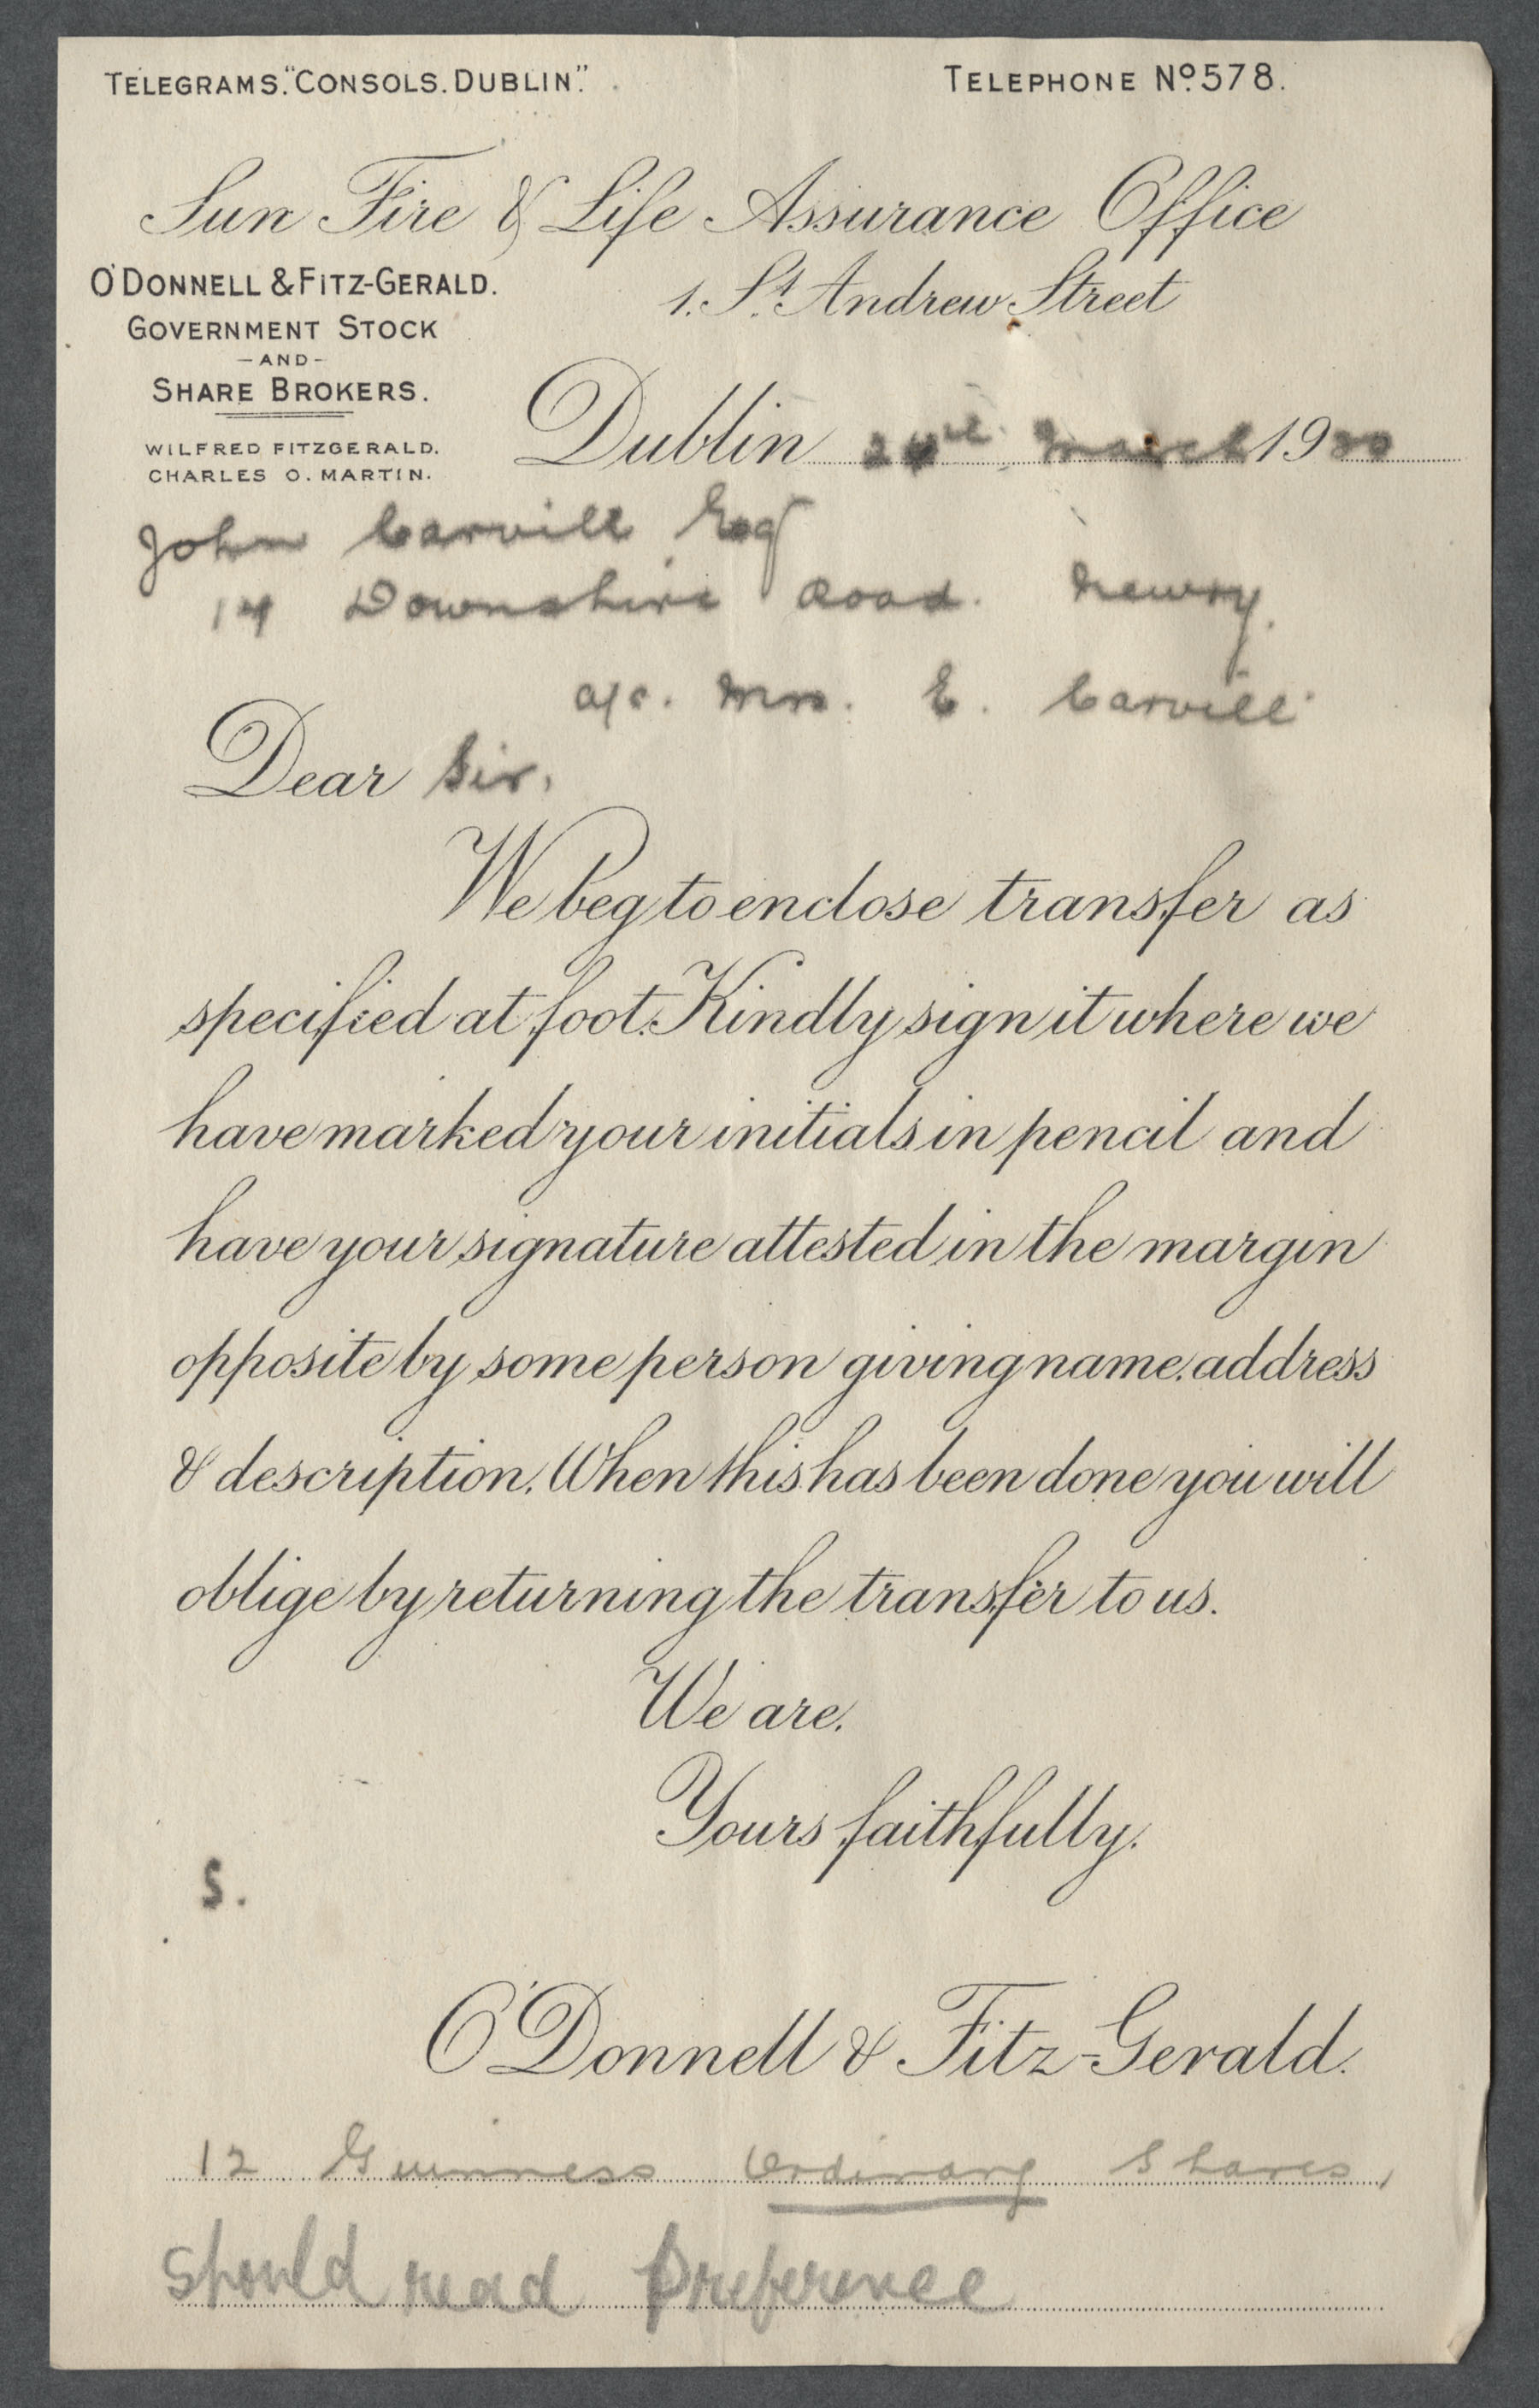 TELEGRAMS. "CONSOLS. DUBLIN."
TELEPHONE Nº 578.
Sun Fire & Life Assurance Office
O'DONNELL & FITZ-GERALD.
1. St. Andrew Street
GOVERNMENT STOCK
- AND -
SHARE BROKERS.
Dublin March 19
WILFRED FITZGERALD.
CHARLES O. MARTIN.
John Carvill Esq
14 Downshire Road. Newry.
a/c. Mrs. E. Carvill
Dear Sir,
We beg to enclose transfer as
specified at foot. Kindly sign it where we
have marked your initials in pencil and
have your signature attested in the margin
opposite by some person giving name, address
& description. When this has been done you will
oblige by returning the transfer to us.
We are,
Yours faithfully,
S.
O'Donnell & Fitz-Gerald.
12 Guinness Ordinary Shares,
Should read Preference